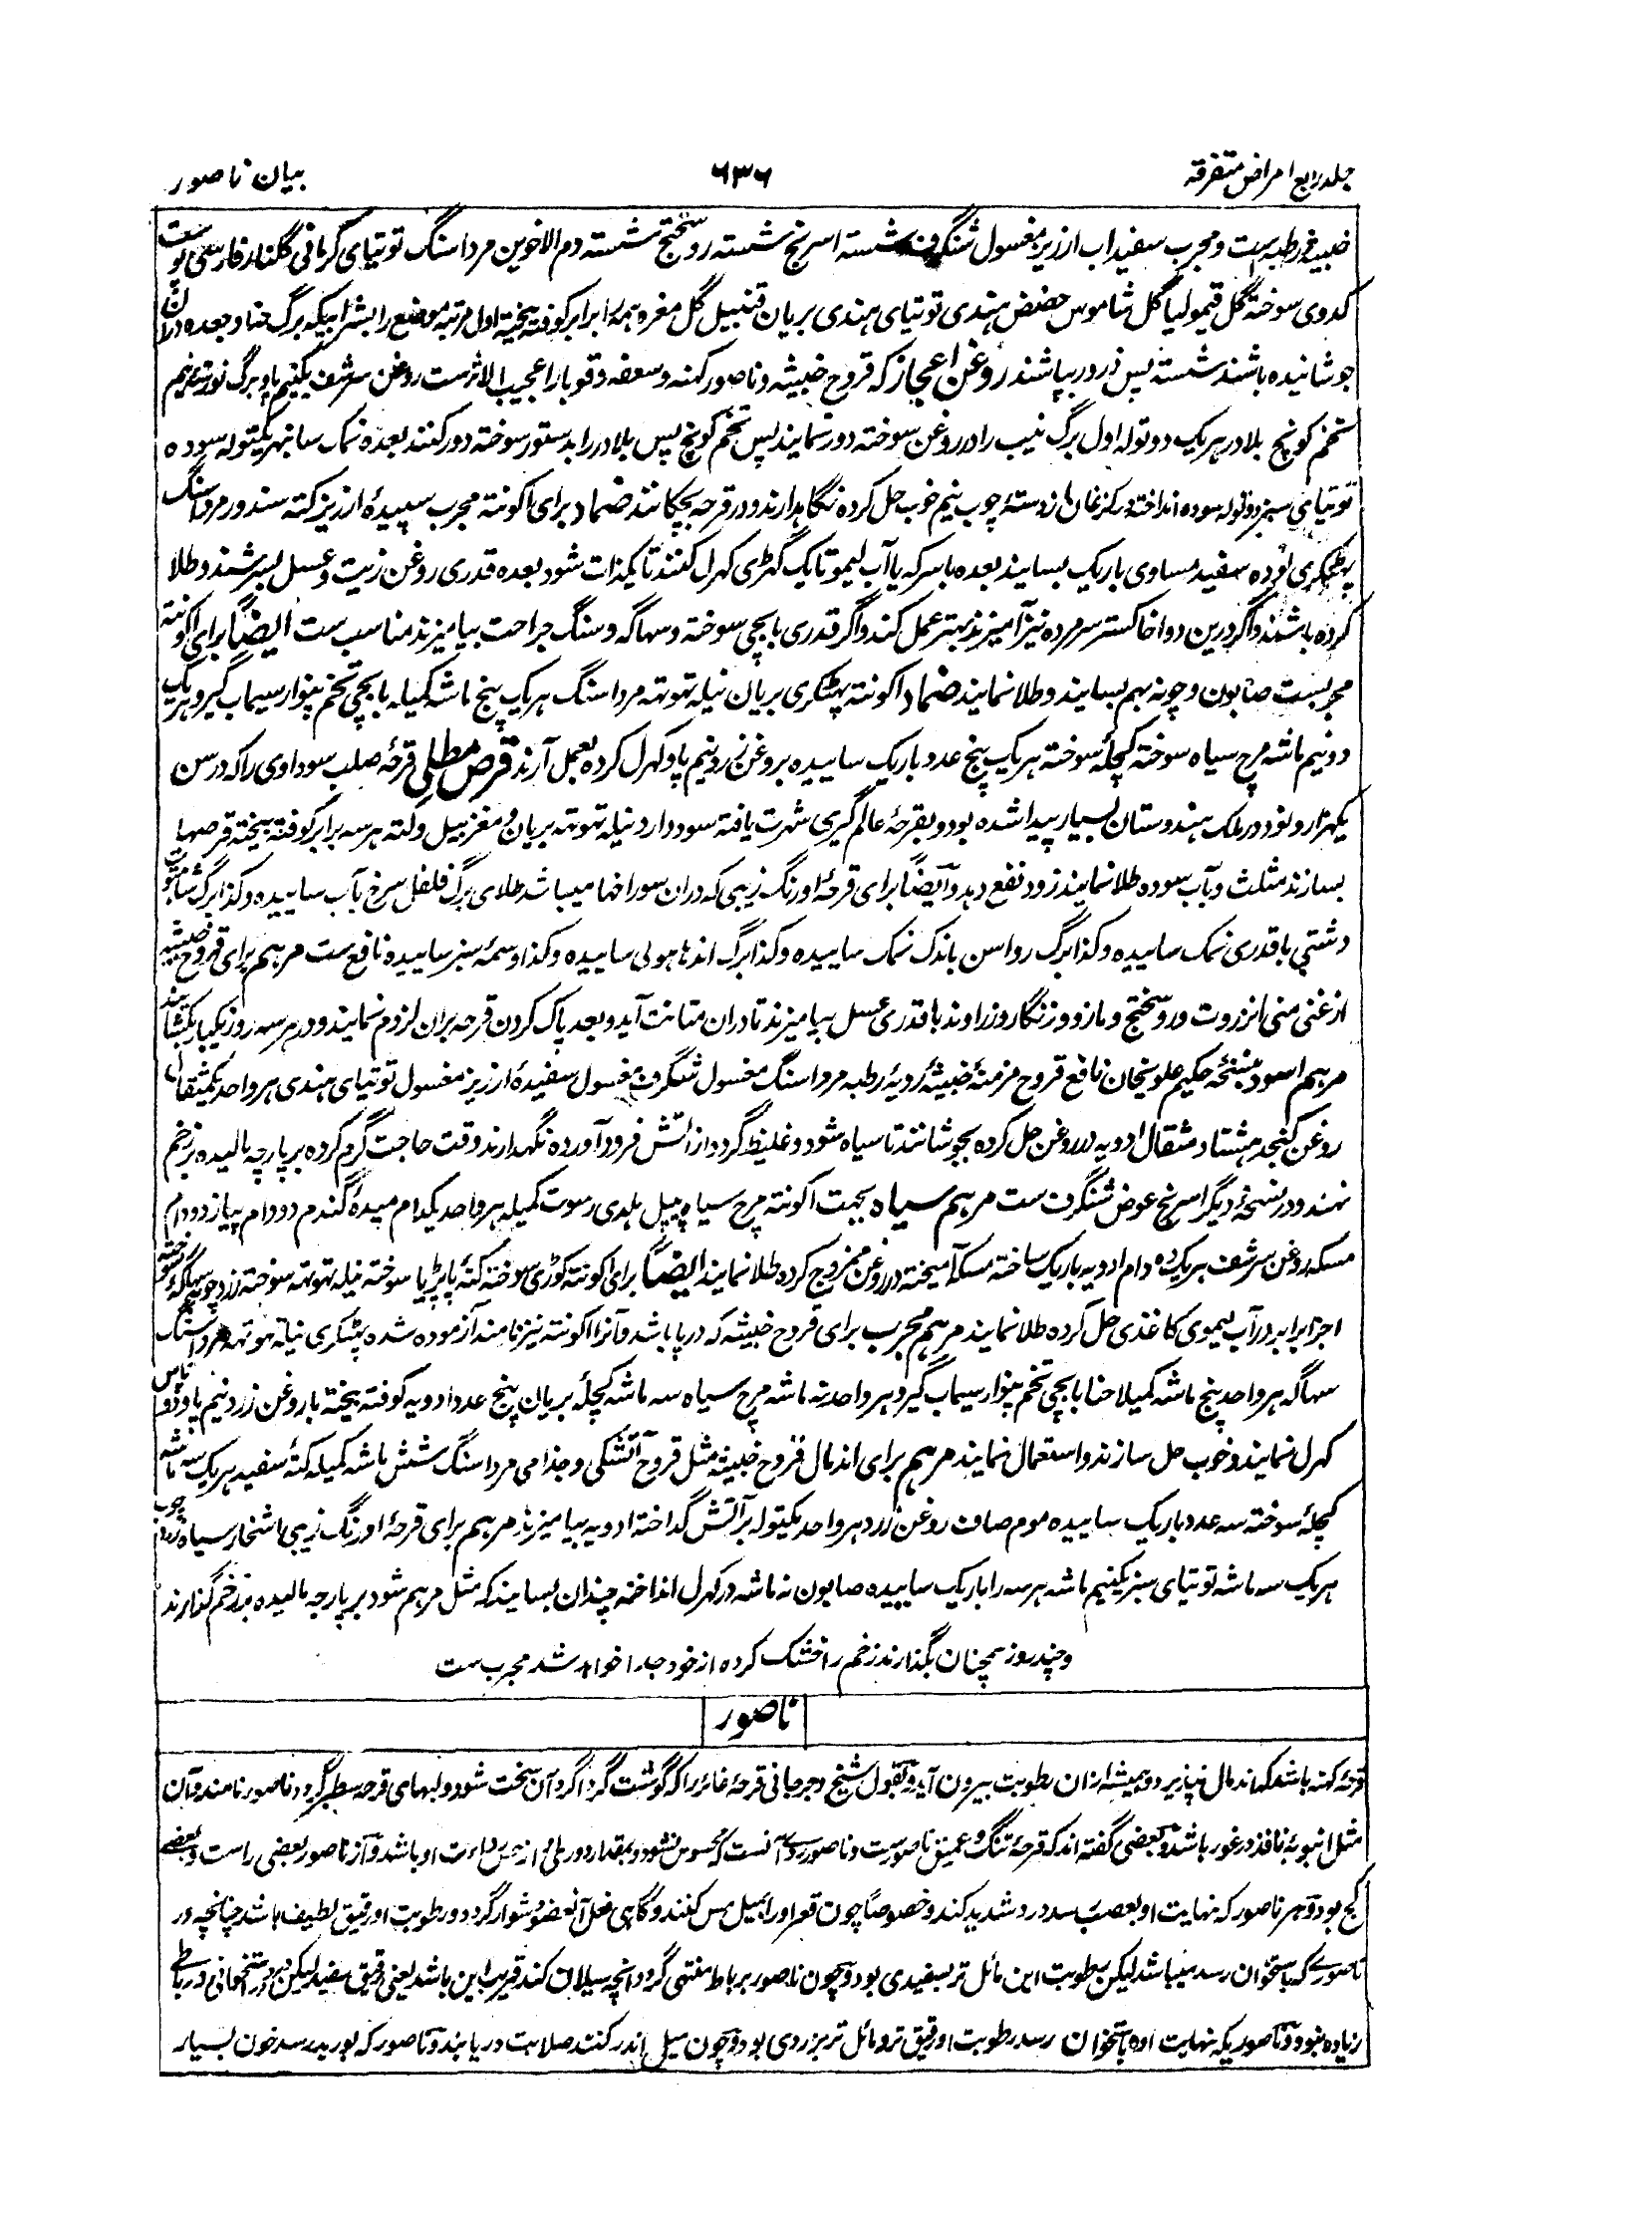 جلد رابع امراض متفرقه ۶۳۶ بیان ناصور
خبیثه رطبه ست و مجرب سفیداب ارزیز مغسول شنگرف شسته اسرنج شسته روسختج شسته دم الاخوین مرداسنگ توتیای کرمانی گلنار فارسی پوست
کدوی سوخته گل قیمولیا گل شاموس حضض هندی توتیای هندی بریان قنبیل گل مغره همه را برابر کوفته بیخته اول مرتبه موضع را بشرابیکه برگ حنا و جعده دران
جوشانیده باشند شسته پس ذرور بپاشند روغن اعجاز که قروح خبیثه و ناصور کهنه و سعفه و قوبا را عجیب الاثرست روغن سرشف یکنیم پاو برگ نیم
تخم کونچ بلادر هریک دو توله اول برگ نیب را در روغن سوخته دور نمایند پس تخم کونچ پس بلادر را بدستور سوخته دور کنند بعده نمک سانبهر یکتوله سوده
توتیای سبز دو توله سوده انداخته درکرنغان از دستهٔ چوب نیم خوب حل کرده نگاهدارند و در قرحه بچکانند ضماد برای اکونته مجرب سپیدهٔ ارزیز کته سندور مرداسنگ
پهٹکری توده سفید مساوی باریک بسایند بعده با سرکه یا آب لیمو تا یک گهڑی کهرل کنند تا یکذات شود بعده قدری روغن زیت و عسل بسرشند و طلا
کرده باشند و اگر درین دوا خاکستر سر مرده نیز آمیزند بهتر عمل کند و اگر قدری بابچی سوخته و سهاگه و سنگ جراحت بیامیزند مناسب ست ایضاً برای اکونته
مجربست صابون و چونه بهم بسایند و طلا نمایند ضماد اکونته پهٹکری بریان نیله تهوتهه مرداسنگ هریک پنج ماشه کمیله بابچی تخم پنوار سیماب گیرو هریک
دونیم ماشه مرچ سیاه سوخته کچلهٔ سوخته هریک پنج عدد باریک ساییده بروغن زرد نیم پاو کهرل کرده بعمل آرند قرص مطلی قرحهٔ صلب سوداوی را که در سن
یکهزار و نود در ملک هندوستان بسیار پیدا شده بود و بقرحهٔ عالم گیری شهرت یافته سود دارد نیله تهوتهه بریان مغز بیل و لته هرسه برابر کوفته بیخته قرصها
بسازند مثلث و بآب سوده طلا نمایند زود نفع دهد و ایضاً برای قرحهٔ اورنگ زیبی که دران سوراخها میباشد طلای برگ فلفل سرخ بآب ساییده و کذا برگ
دشتی با قدری نمک ساییده و کذا برگ رواسن باندک نمک ساییده و کذا برگ اندهاهولی ساییده و کذا وسمهٔ سبز ساییده نافع ست مرهم برای قروح خبیثه
از غنی منی انزروت و روسختج و مازو و زنگار و زراوند با قدری عسل بیامیزند تا دران متانت آید و بعد پاک کردن قرحه بران لزوم نمایند و در هر سه روز یکبار بکشایند
مرهم اسود بنسخه حکیم علویخان نافع قروح مزمنهٔ خبیثهٔ ردیهٔ رطبه مرداسنگ مغسول شنگرف مغسول سفیدهٔ ارزیز مغسول توتیای هندی هرواحد یکمثقال
روغن کنجد هشتاد مثقال ادویه در روغن حل کرده بجوشانند تا سیاه شود و غلیظ گردد از آتش فرود آورده نگهدارند وقت حاجت گرم کرده بر پارچه مالیده بزخم
نهند و در نسخهٔ دیگر اسرنج عوض شنگرف ست مرهم سیاه بجهت اکونته مرچ سیاه پیپل هلدی رسوت کمیله هرواحد یکدام میدهٔ گندم دو دام پیاز دو دام
مسکه روغن سرشف هریک ده دام ادویه باریک ساخته مسکه آمیخته در روغن ممزوج کرده طلا نمایند ایضاً برای اکونته کوڑی سوخته کتهٔ پاپڑیا سوخته نیله تهوتهه سوخته زردچوبه سهاگهٔ سوخته
اجزا برابر در آب لیموی کاغذی حل کرده طلا نمایند مرهم مجرب برای قروح خبیثه که در پا باشد و آنرا اکونته نیز نامند آزموده شده پهٹکری نیله تهوتهه مرداسنگ
سهاگه هرواحد پنج ماشه کمیلا حنا بابچی تخم پنوار سیماب گیرو هرواحد نه ماشه مرچ سیاه سه ماشه کچلهٔ بریان پنج عدد ادویه کوفته بیخته با روغن زرد نیم پاو دو پاس
کهرل نمایند و خوب حل سازند و استعمال نمایند مرهم برای اندمال قروح خبیثه مثل قروح آتشکی و جذامی مرداسنگ شش ماشه کمیله کتهٔ سفید هریک سه ماشه
کچلهٔ سوخته سه عدد باریک ساییده موم صاف روغن زرد هرواحد یکتوله بر آتش گداخته ادویه بیامیزند مرهم برای قرحهٔ اورنگ زیبی اشخار سیاه زردچوب
هریک سه ماشه توتیای سبز یکنیم ماشه هرسه را باریک ساییده صابون نه ماشه در کهرل انداخته چندان بسایند که مثل مرهم شود بر پارچه مالیده بر زخم گذارند
و چند روز همچنان بگذارند زخم را خشک کرده از خود جدا خواهد شد مجرب ست
ناصور
قرحهٔ کهنه باشد که اندمال نپذیرد و همیشه ازان رطوبت بیرون آید و بقول شیخ و جرجانی قرحهٔ غائره را که گوشت گرداگرد آن سخت شود و لبهای قرحه سطبر گردد ناصور نامند و آن
مثل انبوبهٔ نافذ در غور باشد و بعضی گفته اند که قرحهٔ تنگ و عمیق ناصورست و ناصور ردی آنست که محسوس نشود و بمقدار دوری از حس رداءت او باشد و از ناصور بعضی راست و بعضی
کج بود و هر ناصور که نهایت او بعصب رسد درد شدید کند و خصوصاً چون قعر او را بمیل مس کنند و گاهی فعل آن عضو دشوار گردد و رطوبت او رقیق لطیف باشد چنانچه در
ناصوری که باستخوان رسد میباشد لیکن رطوبت این مائل تر بسفیدی بود و چون ناصور برباط منتهی گردد آنچه سیلان کند قریب باین باشد یعنی رقیق سفید لیکن درد در استخوانی و رباطی
زیاده نبود و ناصوریکه نهایت او باستخوان رسد رطوبت او رقیق تر و مائل تر بزردی بود و چون میل اندر کنند صلابت دریابند و ناصور که بورید رسد خون بسیار